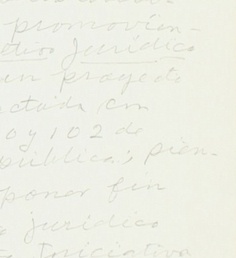 promovien-
etivo Jurídico
un proyecto
ctada con
0 y 102 de
pública; pien-
poner fin
jurídico
Iniciativa